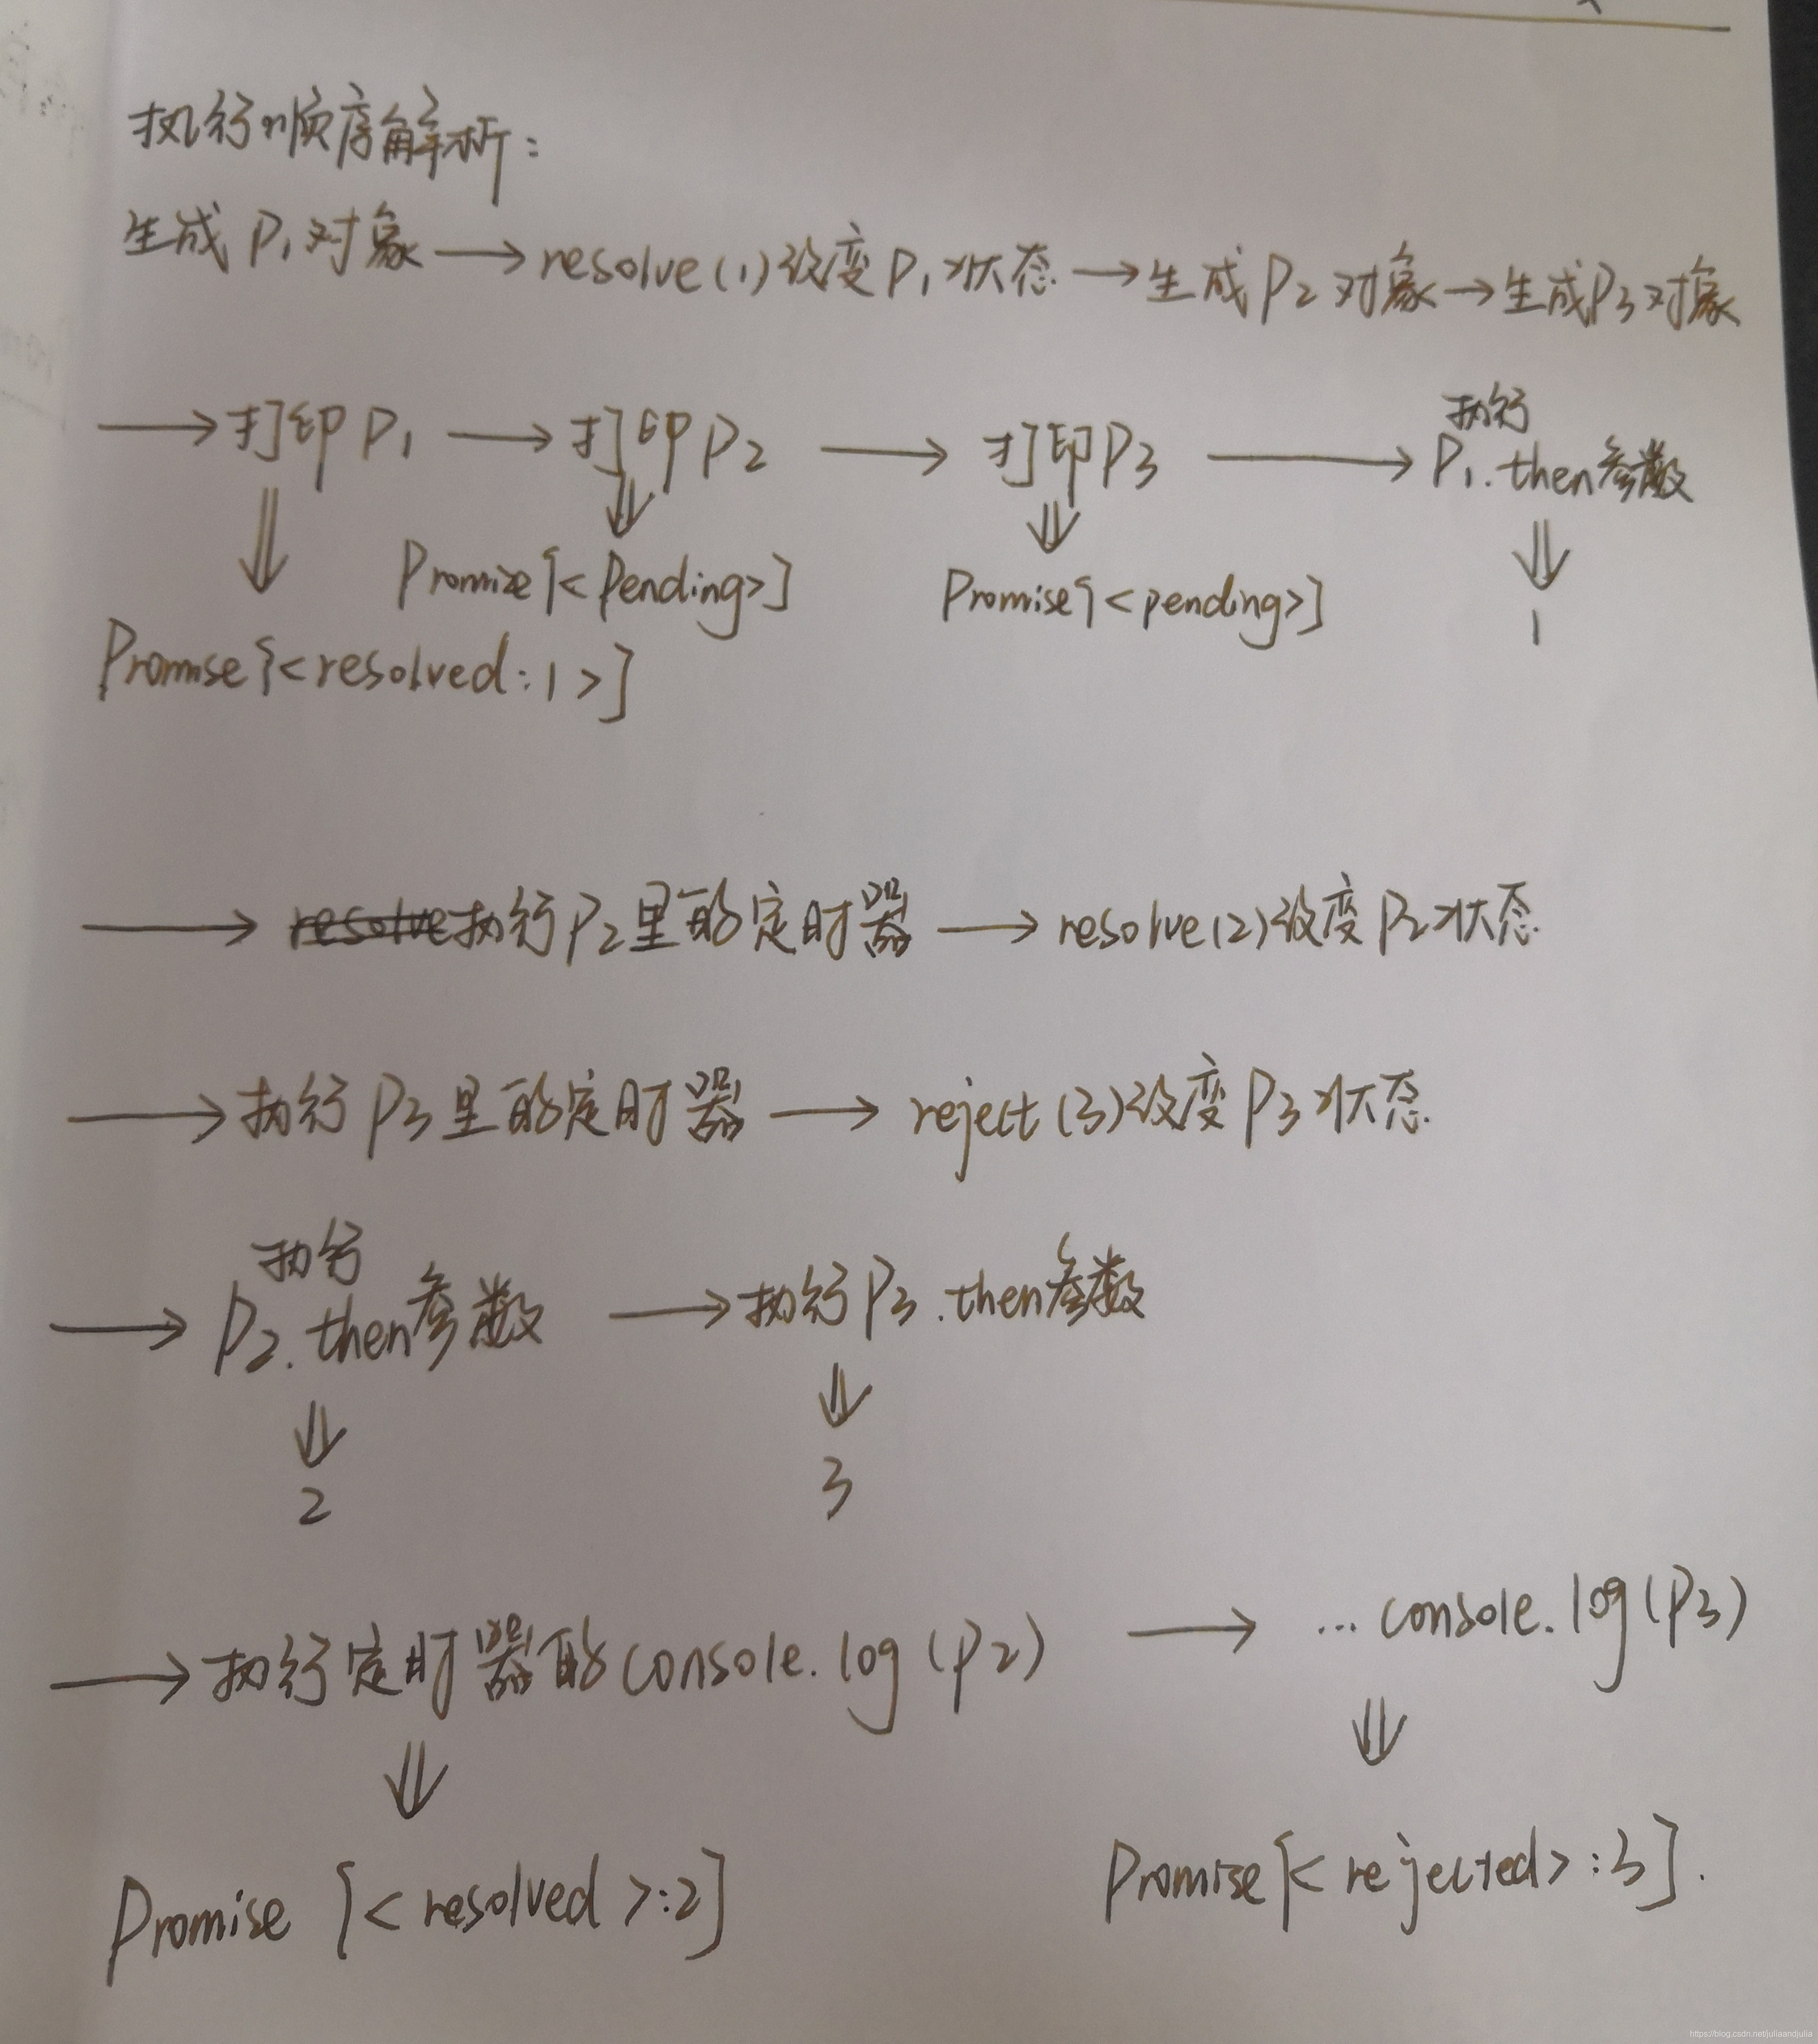 执行顺序解析:
生成P1对象→resolve(1)改变P1状态→生成P2对象→生成P3对象
→打印P1→打印P2→打印P3→执行P1.then参数
⇓ ⇓ ⇓ ⇓
Promise{<pending>} Promise{<pending>} 1
Promise{<resolved:1>}
→resolve执行P2里的定时器→resolve(2)改变P2状态
→执行P3里的定时器→reject(3)改变P3状态.
→执行P2.then参数→执行P3.then参数
⇓ ⇓
2 3
→执行定时器的console.log(P2)→...console.log(P3)
⇓ ⇓
Promise {<resolved>:2} Promise{<rejected>:3}.
https://blog.csdn.net/juliaandjulia